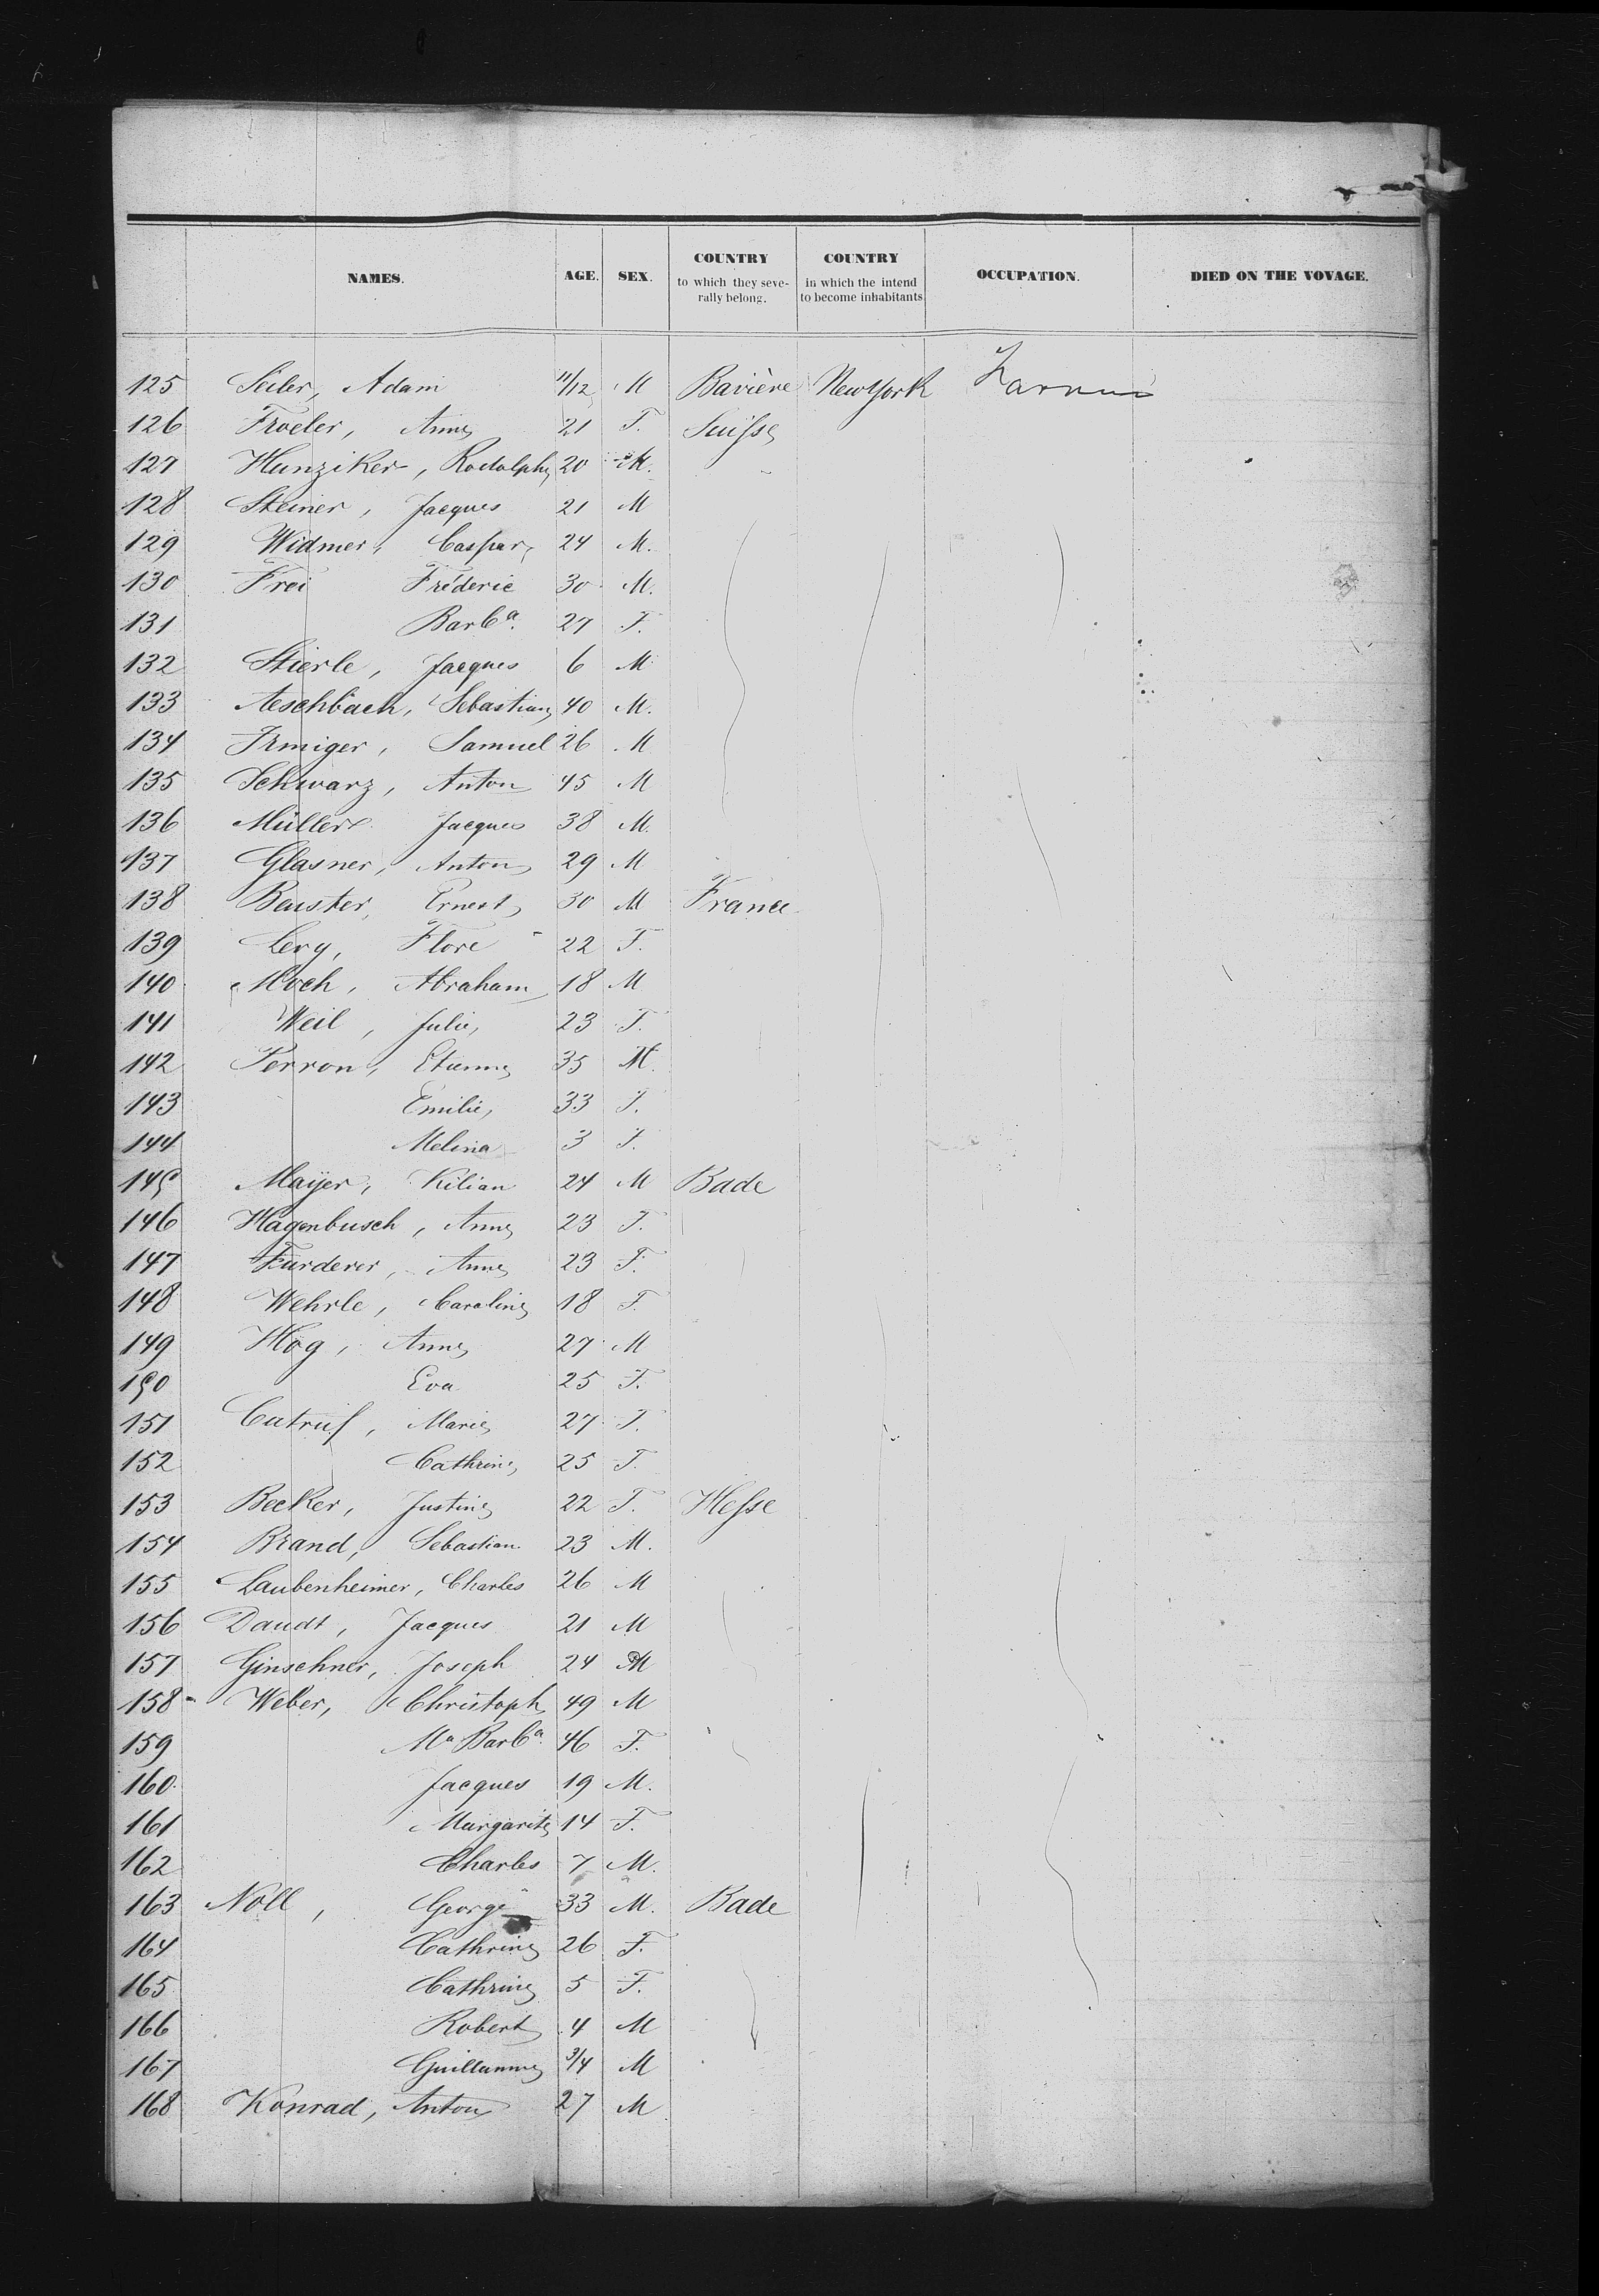 NAMES. AGE. SEX. COUNTRY to which they seve-rally belong. COUNTRY in which the intend to become inhabitants OCCUPATION. DIED ON THE VOYAGE.
125 Seiler, Adam 11/12 M Bavière New York
126 Froeler, Anne 21 F. Suisse
127 Hunziker, Rodolphe 20 M.
128 Steiner, Jacques 21 M
129 Widmer, Caspar 24 M.
130 Frei Fréderic 30 M.
131 Barba. 27 F.
132 Stierle, Jacques 6 M
133 Aeschbach, Sebastian 40 M.
134 Irmiger, Samuel 26 M
135 Schwarz, Anton 45 M
136 Müller Jacques 38 M.
137 Glasner, Anton 29 M
138 Beuster, Ernest 30 M France
139 Levy, Flore 22 F.
140 Moch, Abraham 18 M
141 Weil, Julie, 23 F.
142 Perron, Etienne 35 M.
143 Emilie, 33 F.
144 Melina 3 F.
145 Maÿer, Kilian 24 M Bade
146 Hagenbusch, Anne 23 F.
147 Furderer, Anne 23 F.
148 Wehrle, Caroline 18 F.
149 Hög, Anne 27 M
150 Eva 25 F.
151 Marie 27 F.
152 Cathrine 25 F.
153 Becker, Justine 22 F. Hesse
154 Brand, Sebastian 23 M.
155 Laubenheimer, Charles 26 M
156 Daudt, Jacques 21 M
157 Ginschner, Joseph 24 M
158 Weber, Christoph 49 M
159 Ma Barba. 46 F.
160. Jacques 19 M.
161 Margarite 14 F.
162 Charles 7 M.
163 Noll, George 33 M. Bade
164 Cathrine 26 F.
165 Cathrine 5 F.
166 Robert 4 M
167 Guillaume 3/4 M
168 Konrad, Anton 27 M